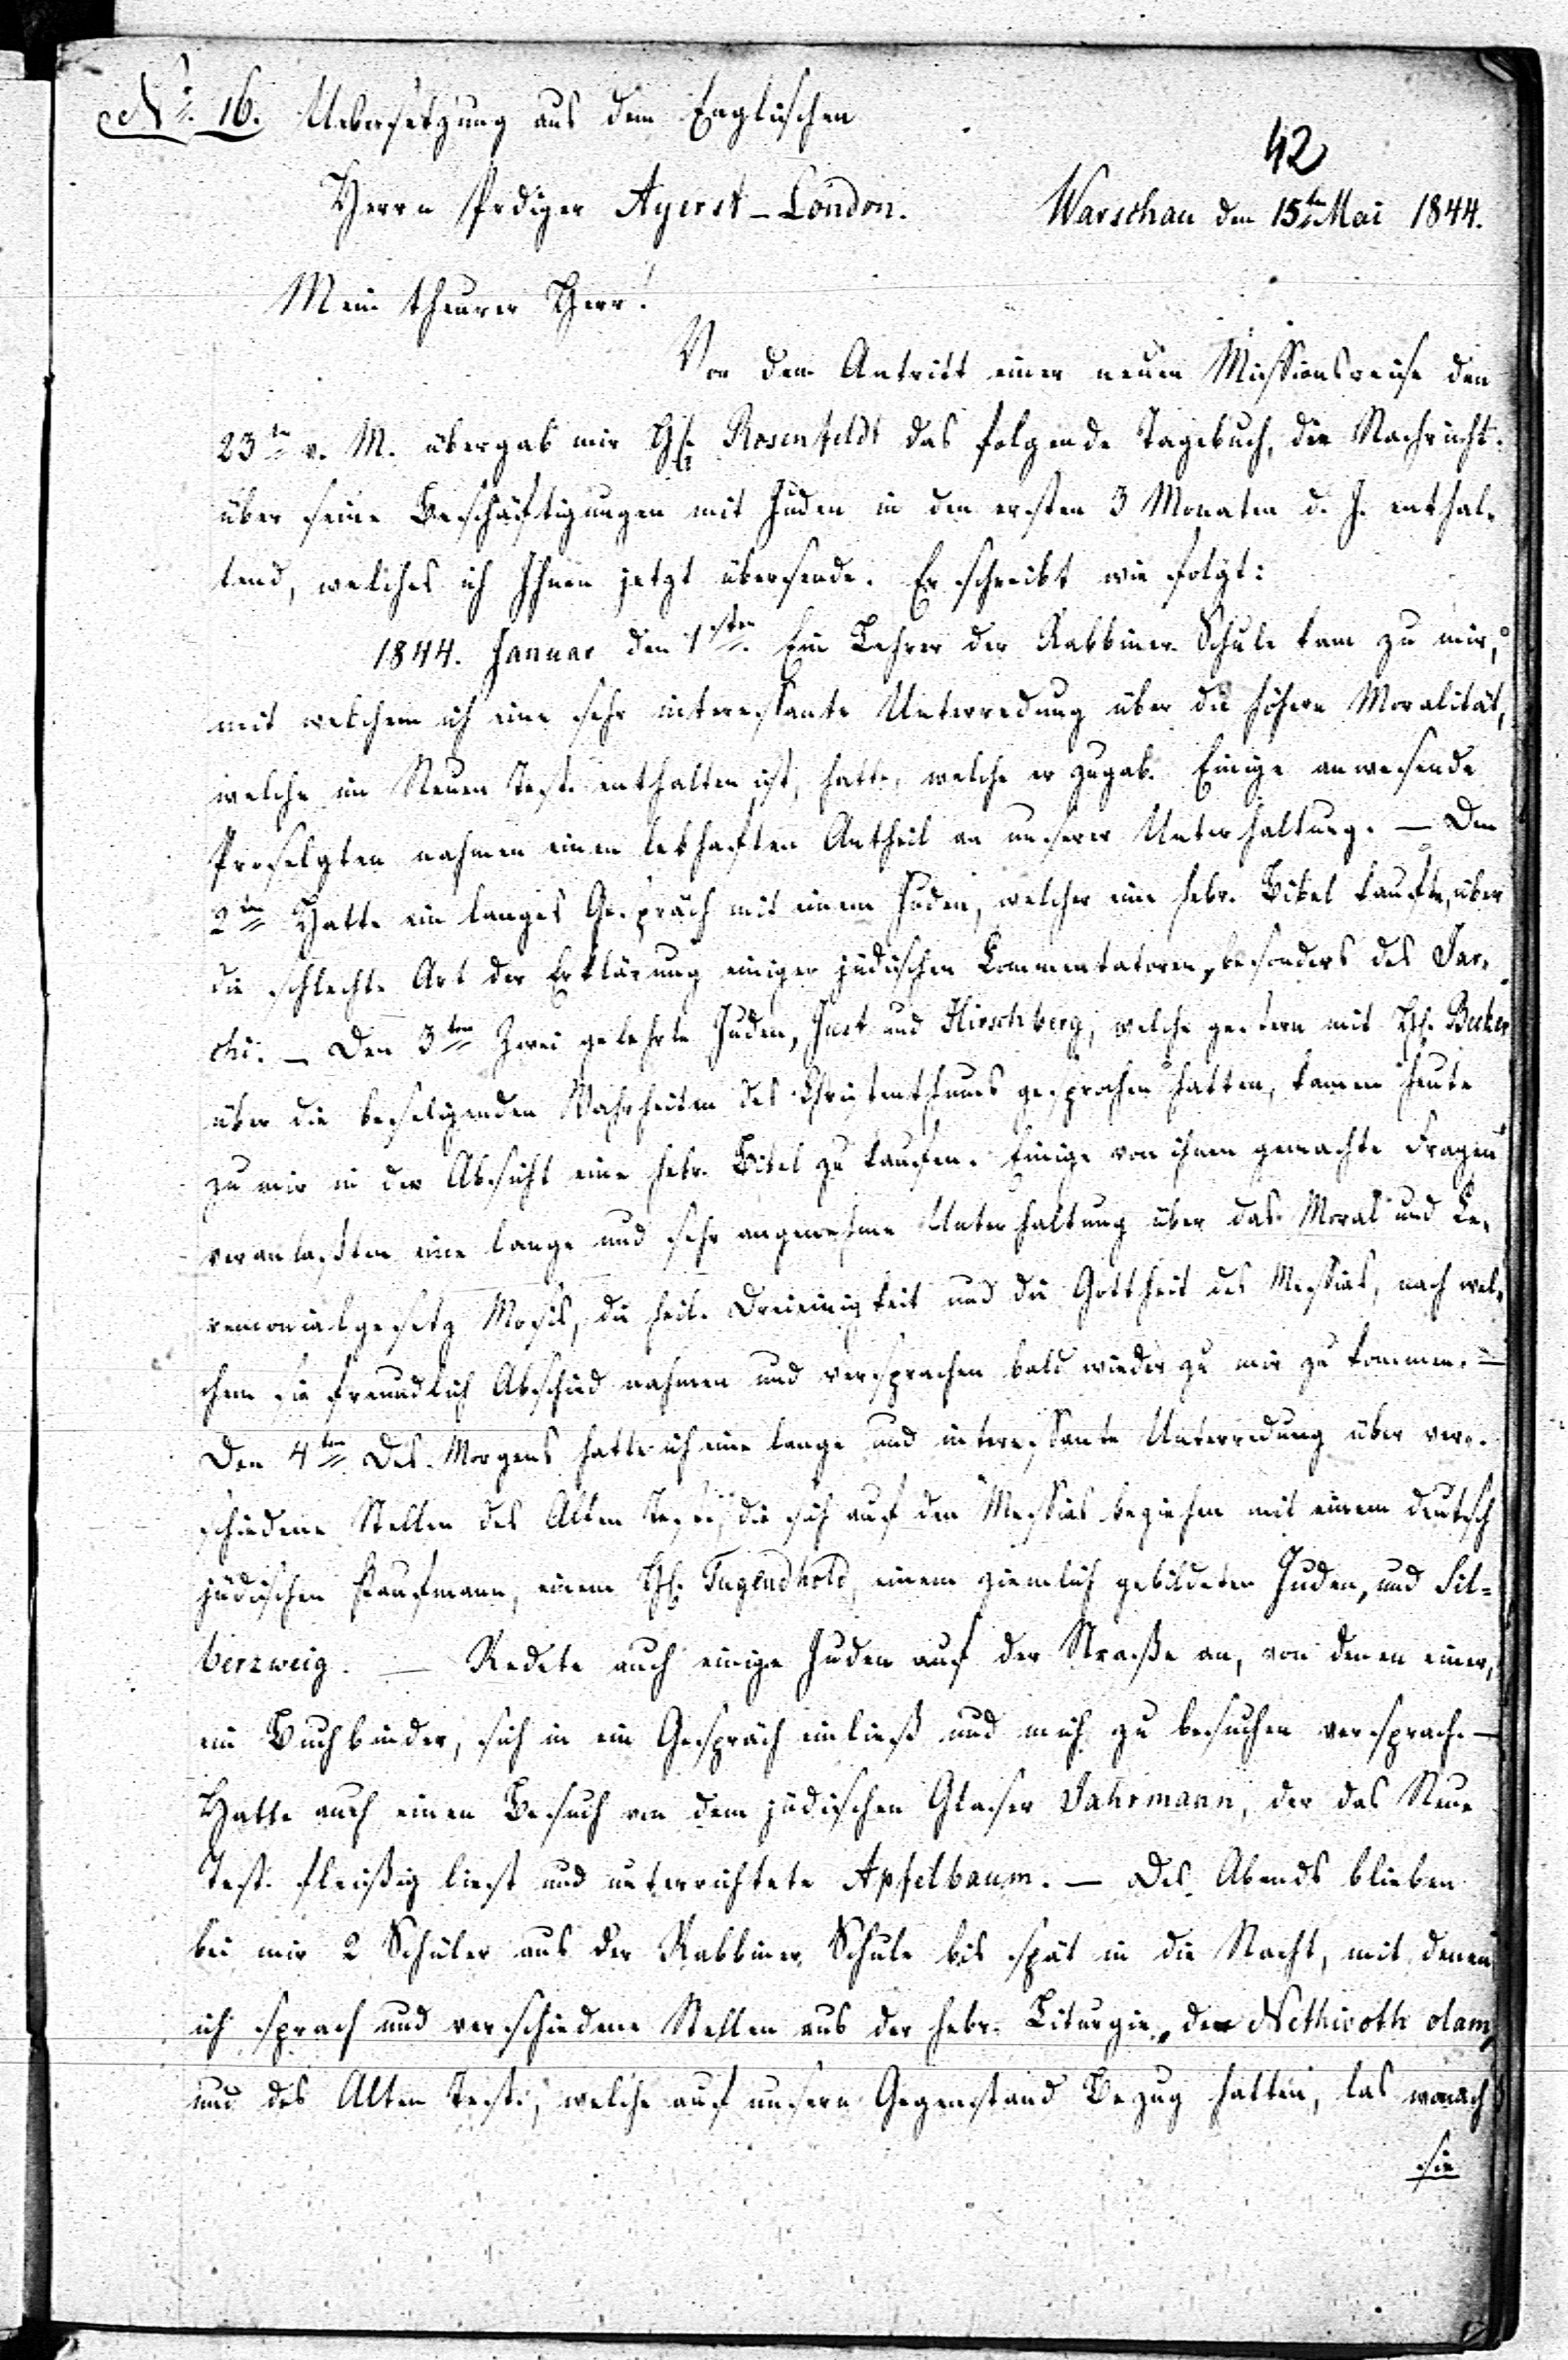 No. 16. Uebersetzung aus dem Englischen
42
Herrn Prediger Ayerst-London. Warschau den 15ten Mai 1844.
Mein theurer Herr!
Vor dem Antritt einer neuen Missionsreise den
23ten v. M. übergab mir H. Rosenfeldt das folgende Tagebuch, die Nachricht
über seine Beschäftigungen mit Juden in den ersten 3 Monaten d. J. enthal-
tend, welches ich Ihnen jetzt übersende. Er schreibt wie folgt:
1844. Januar den 1sten. Ein Lehrer der Rabbiner-Schule kam zu mir,
mit welchem ich eine sehr interessante Unterredung über die höhere Moralität,
welche im Neuen Test. enthalten ist, hatte, welche er zugab. Einige anwesende
Proselyten nahmen einen lebhaften Antheil an unserer Unterhaltung. — Den
2ten Hatte ein langes Gespräch mit einem Juden, welcher eine hebr. Bibel kaufte, über
die schlechte Art der Erklärung einiger jüdischen Commentatoren, besonders des Jar-
chi. — Den 3ten Zwei gelehrte Juden, Just und Hirschberg, welche gestern mit H. Becker
über die beseligenden Wahrheiten des Christenthums gesprochen hatten, kamen heute
zu mir in der Absicht eine hebr. Bibel zu kaufen. Einige von ihnen gemachte Fragen
veranlaßten eine lange und sehr angenehme Unterhaltung über das Moral und Ce-
remonialgesetz Mosis, die heil. Dreieinigkeit und die Gottheit des Messias, nach wel-
chem sie freundlich Abschied nahmen und versprachen bald wieder zu mir zu kommen. —
Den 4ten Des Morgens hatte ich eine lange und interessante Unterredung über ver-
schiedene Stellen des Alten Test., die sich auf den Messias beziehen mit einem deutsch
jüdischen Kaufmann, einem H. Tugendhold, einem ziemlich gebildeten Juden, und Sil-
berzweig. — Redete auch einige Juden auf der Straße an, von denen einer,
ein Buchbinder, sich in ein Gespräch einließ und mich zu besuchen versprach. —
Hatte auch einen Besuch von dem jüdischen Glaser Jahrmann, der das Neue
Test. fleißig liest und unterrichtete Apfelbaum. — Des Abends blieben
bei mir 2 Schüler aus der Rabbiner Schule bis spät in die Nacht, mit denen
ich sprach und verschiedene Stellen aus der hebr. Liturgie, der Nethivoth olam,
und des Alten Test., welche auf unsern Gegenstand Bezug hatten, las wonach
sie